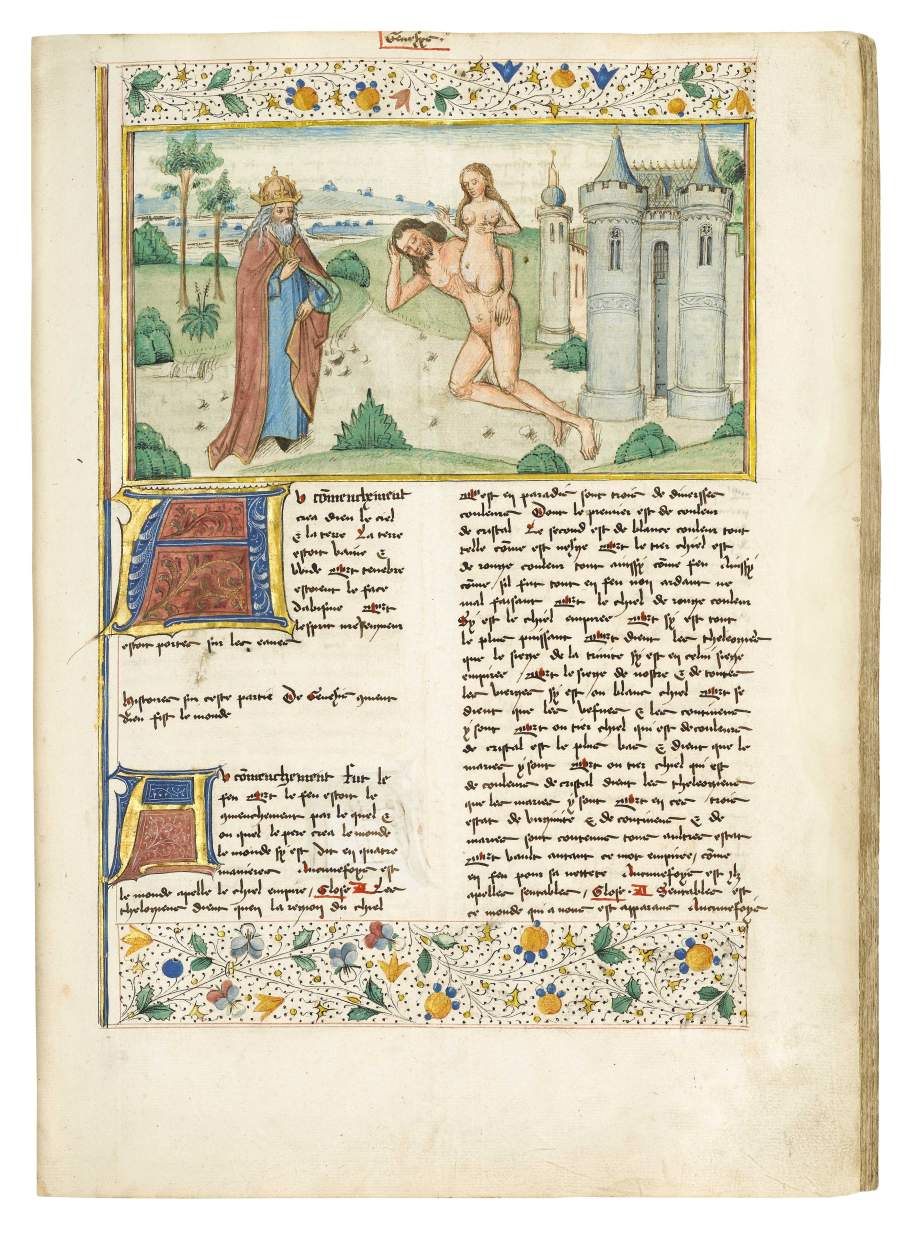 Genesis.
Au cōmenchement
crea dieu le ciel
& la terre La terre
estoit vaine &
wide Mort tenebre
estoient le face
dabisme Mort
lesprit nr̄e seigneur
estoit portes sur les eaues
histores sur ceste partie De Genesis cōment
dieu fist le monde
Au cōmenchement fut le
feu Mort le feu estoit le
cōmenchement par le quel &
ou quel le pere crea le monde
le monde sy est dit en quatre
manieres Aucunefoys est
le monde apelle le chiel empire / Glose Les
theologiens dient quen la region du chiel
est en paradis sont trois de diversses
couleurs Dont le premier est de couleur
de cristal Le second est de blance couleur tout
telle cōme est neige Mort le tier chiel est
de rouge couleur tout aussy cōme feu Aussy
cōme / sil fut tout en feu non ardant ne
mal faisant Mort le chiel de rouge couleur
Sy est le chiel empiree Mort sy est tout
le plus puissant Mort dient les theologiens
que le siege de la trinite sy est en celui siege
empiree / Mort le siege de nostre & de toutes
les vierges sy est / ou blanc chiel Mort se
dient que les vesves & les continens
y sont Mort ou tier chiel qui est de couleur
de cristal est le plus bas & dient que le
maries y sont Mort ou tier chiel qui est
de couleur de cristal dient les theologiens
que les maries y sont Mort en ces / trois
estat de virginite & de continens & de
maries sont contenus tous aultres estat
Mort vault autant ce mot empiree / cōme
en feu pour sa nettete Aucunefoys est
apelles sentables / Glose Sentables est
ce monde qui a nous est apparans Aucunefoys